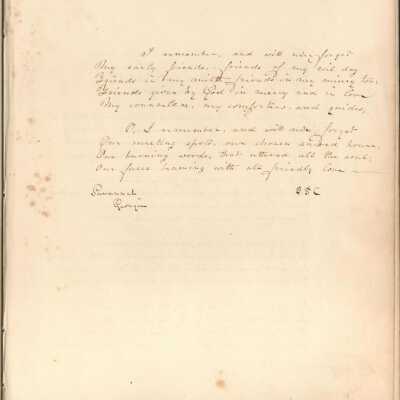 I remember, and will ne'er forget
My early friends, friends of my evil day
Friends in my mirth, friends in my misery too,
Friends given by God in mercy and in love
My counsellors, my comforters, and guides,
O, I remember, and will ne'er forget
Our meeting spots, our chosen sacred hours,
Our burning words, that uttered all the soul,
Our faces beaming with
love
Savannah
Georgia